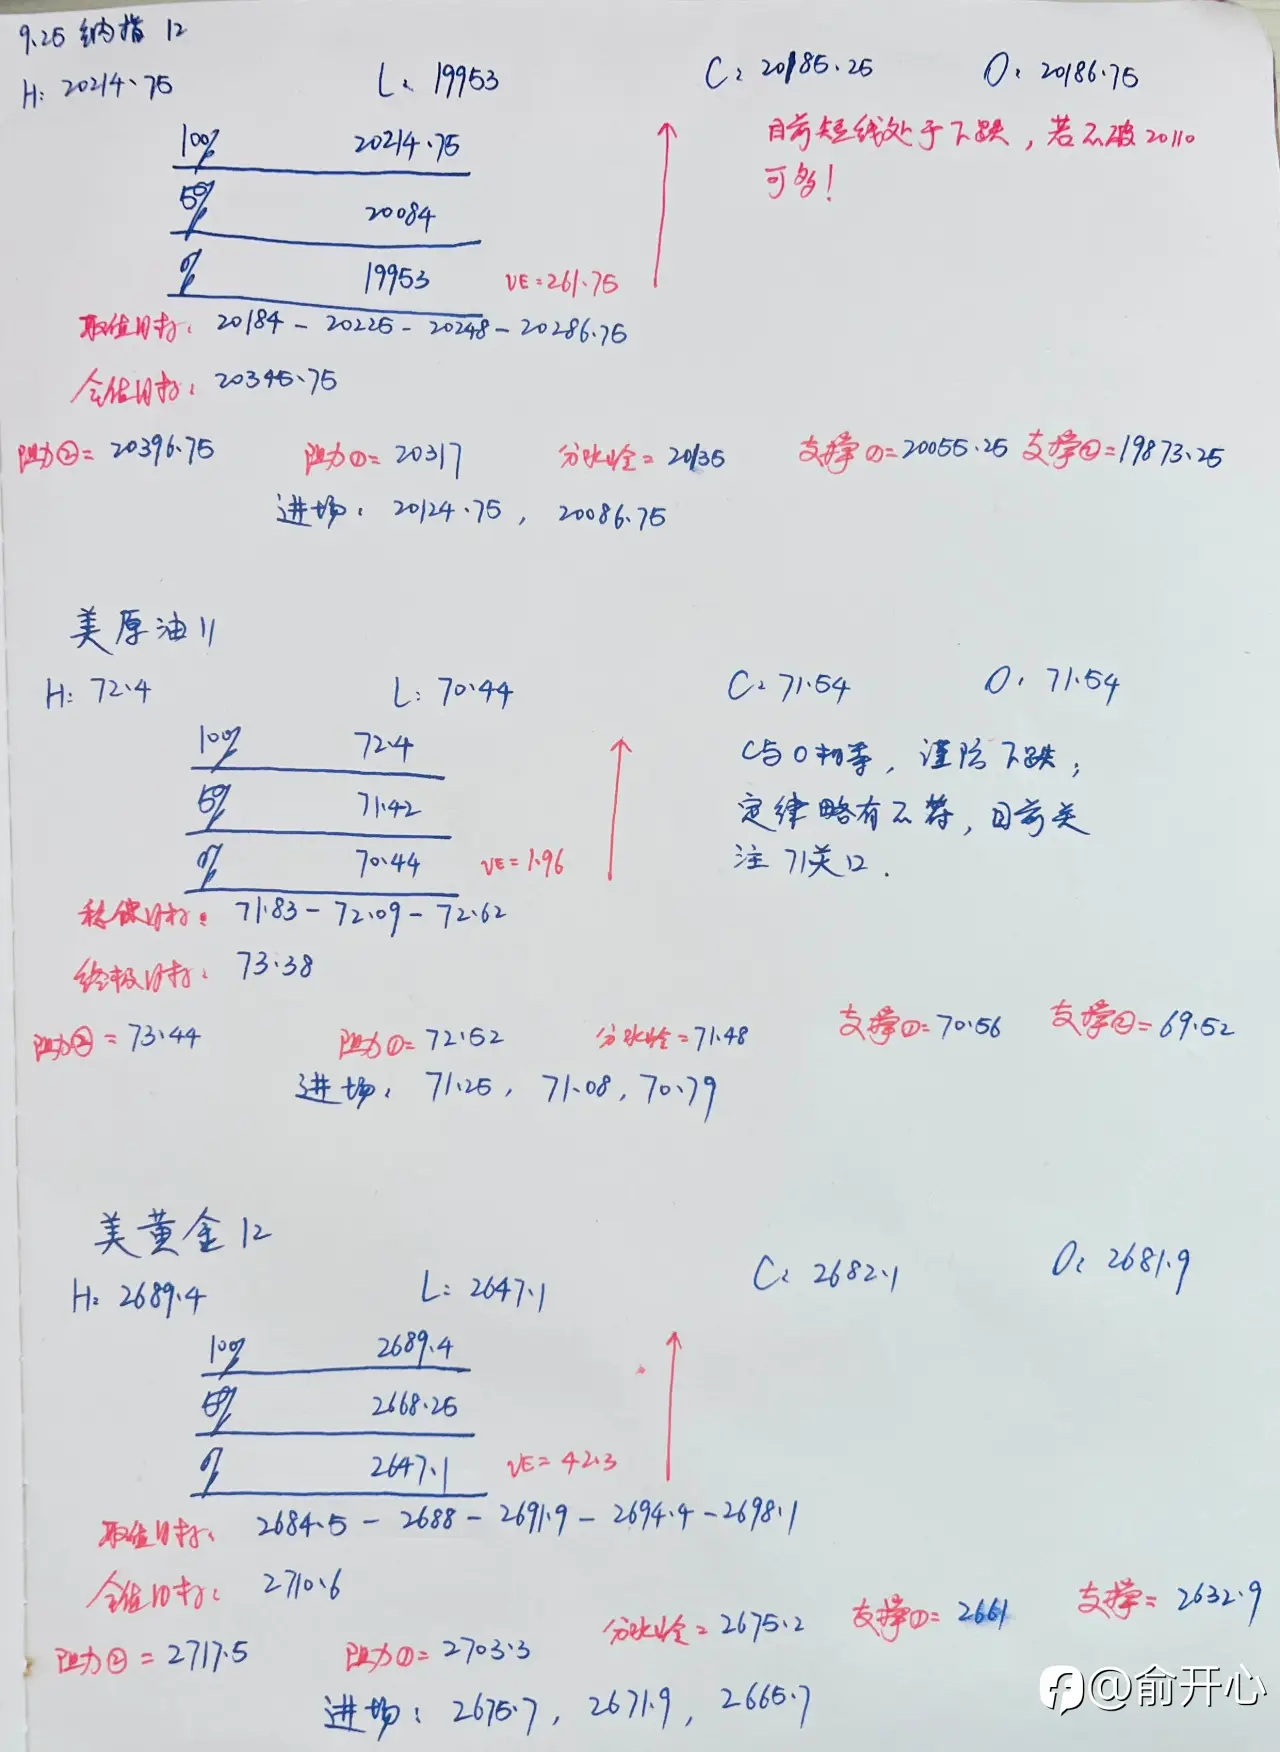 9.25 纳指 12
H: 20214.75 L: 19953 C: 20185.25 O: 20186.75
100% 20214.75
目前短线处于下跌，若不破20110
可多！
50% 20084
% 19953 VE=261.75
取值目标: 20184 - 20225 - 20248 - 20286.75
全值目标: 20345.75
阻力②= 20396.75 阻力①= 20317 分水岭= 20135 支撑①=20055.25 支撑②=19873.25
进场: 20124.75, 20086.75
美原油11
H: 72.4 L: 70.44 C: 71.54 O: 71.54
100% 72.4
C与O相等，谨防下跌；
50% 71.42
定律略有不符，目前关
% 70.44 VE=1.96
注71关口.
稳健目标: 71.83 - 72.09 - 72.62
终极目标: 73.38
阻力②= 73.44 阻力①= 72.52 分水岭=71.48 支撑①=70.56 支撑②=69.52
进场: 71.25, 71.08, 70.79
美黄金12
H: 2689.4 L: 2647.1 C: 2682.1 O: 2681.9
100% 2689.4
50% 2668.25
% 2647.1 VE= 42.3
取值目标: 2684.5 - 2688 - 2691.9 - 2694.4 - 2698.1
全值目标: 2710.6
阻力②= 2717.5 阻力①= 2703.3 分水岭= 2675.2 支撑①= 2661 支撑= 2632.9
进场: 2675.7, 2671.9, 2665.7
@俞开心